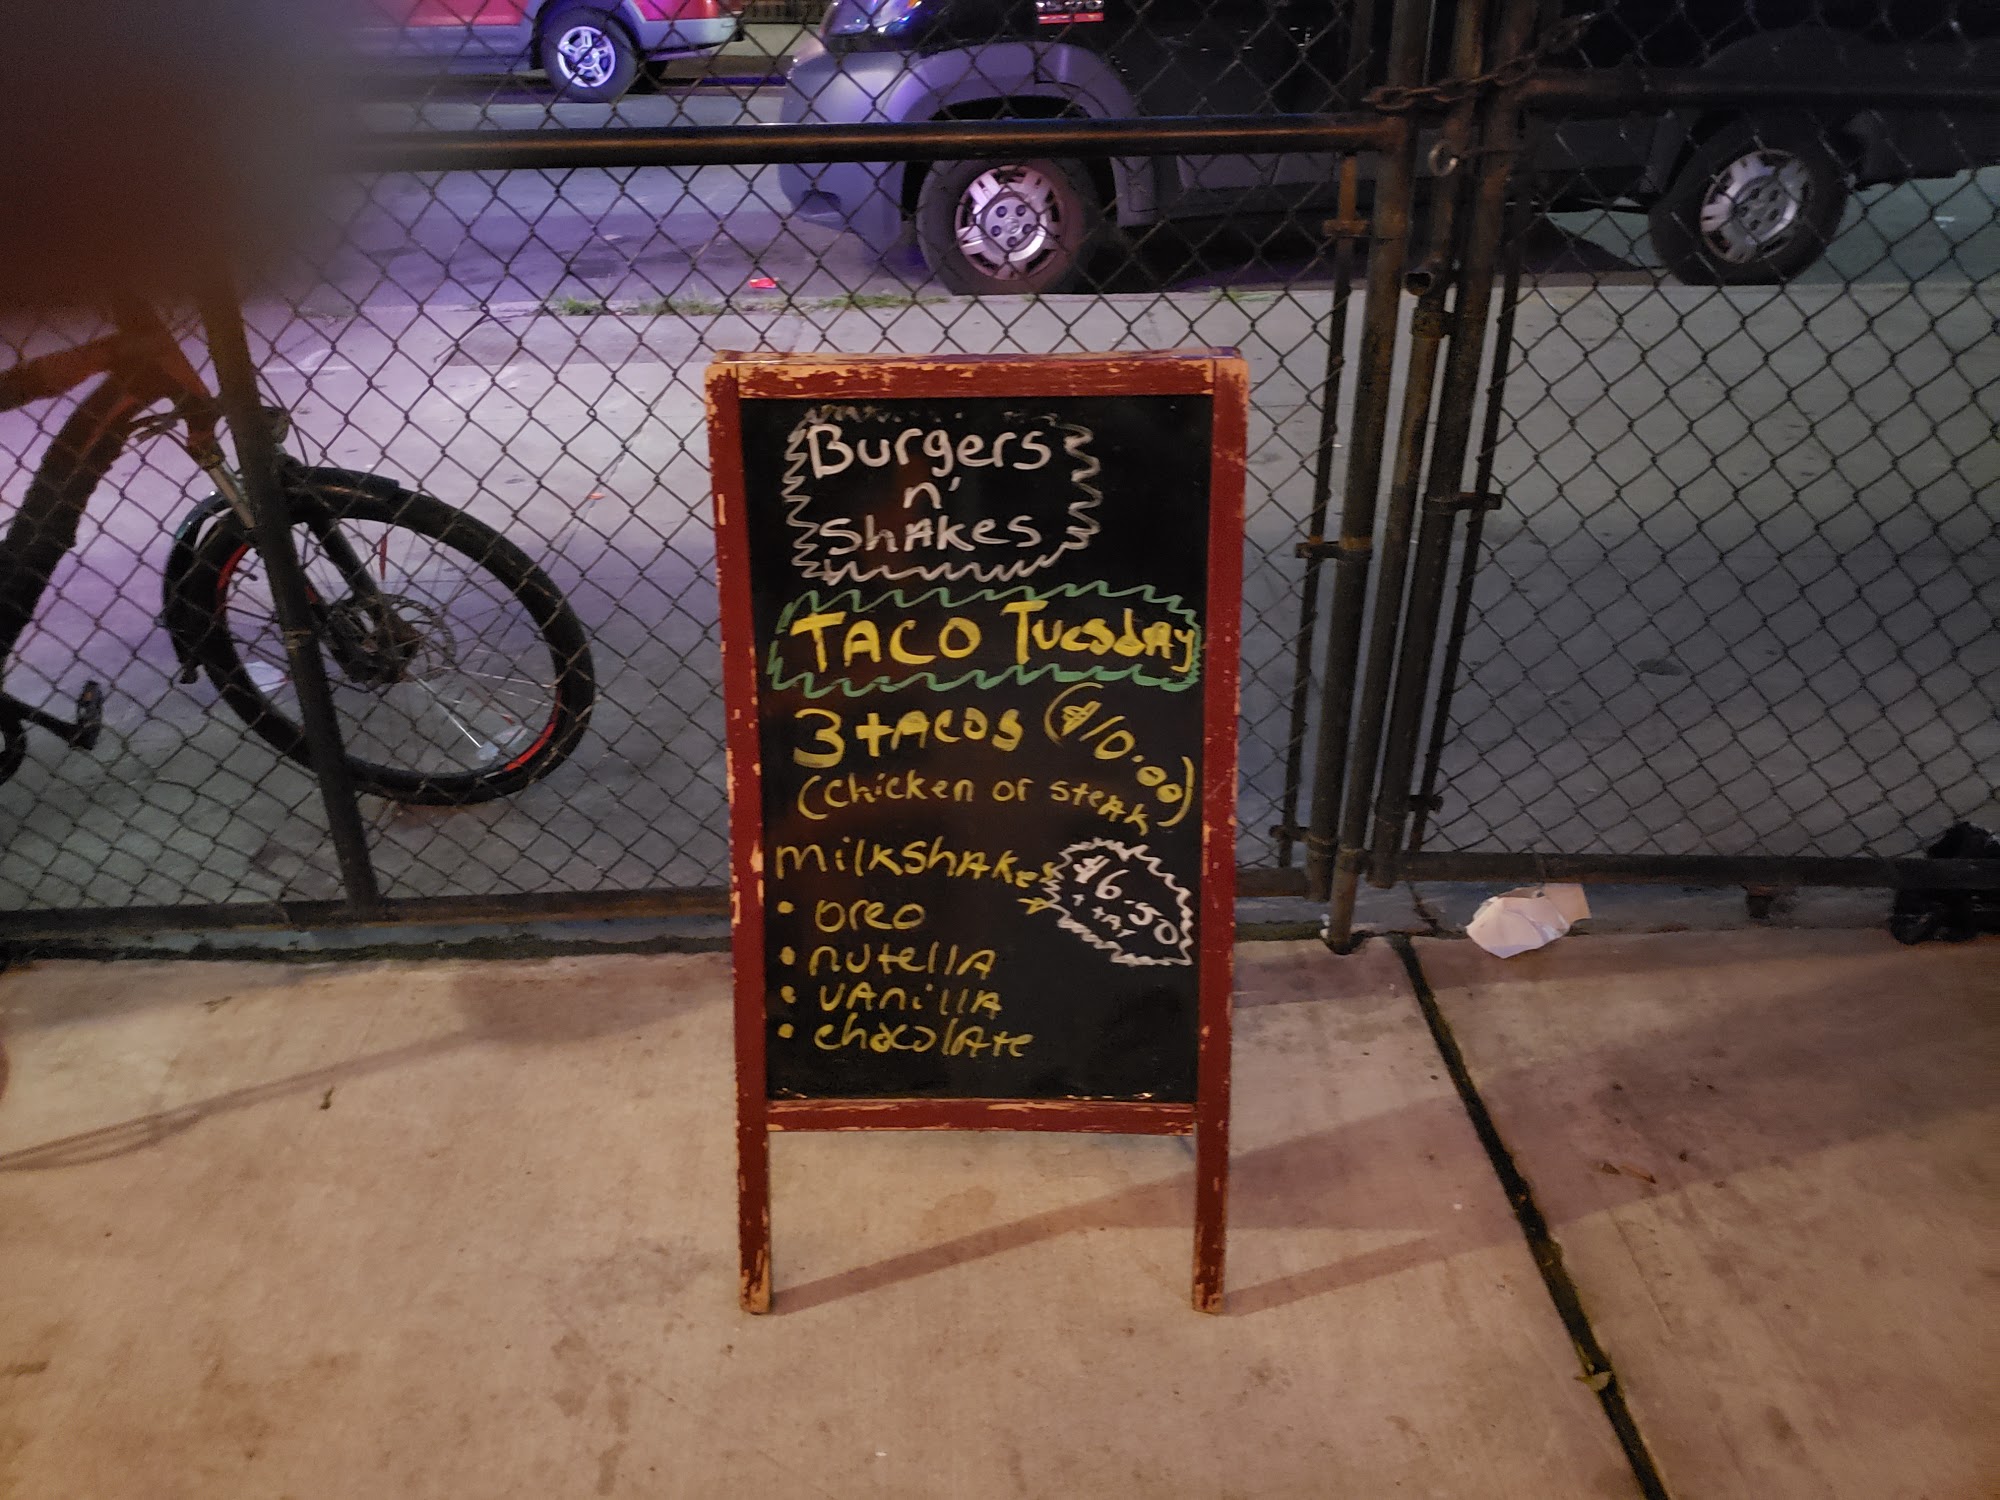 Burgers
n'
ShAkes
TACO TuesdAy
3 tACOS ($10.00)
(chicken or steAk
milkshAkes
$6.50
+ tAx
• oreo
• nutellA
• vAnillA
• chocolAte